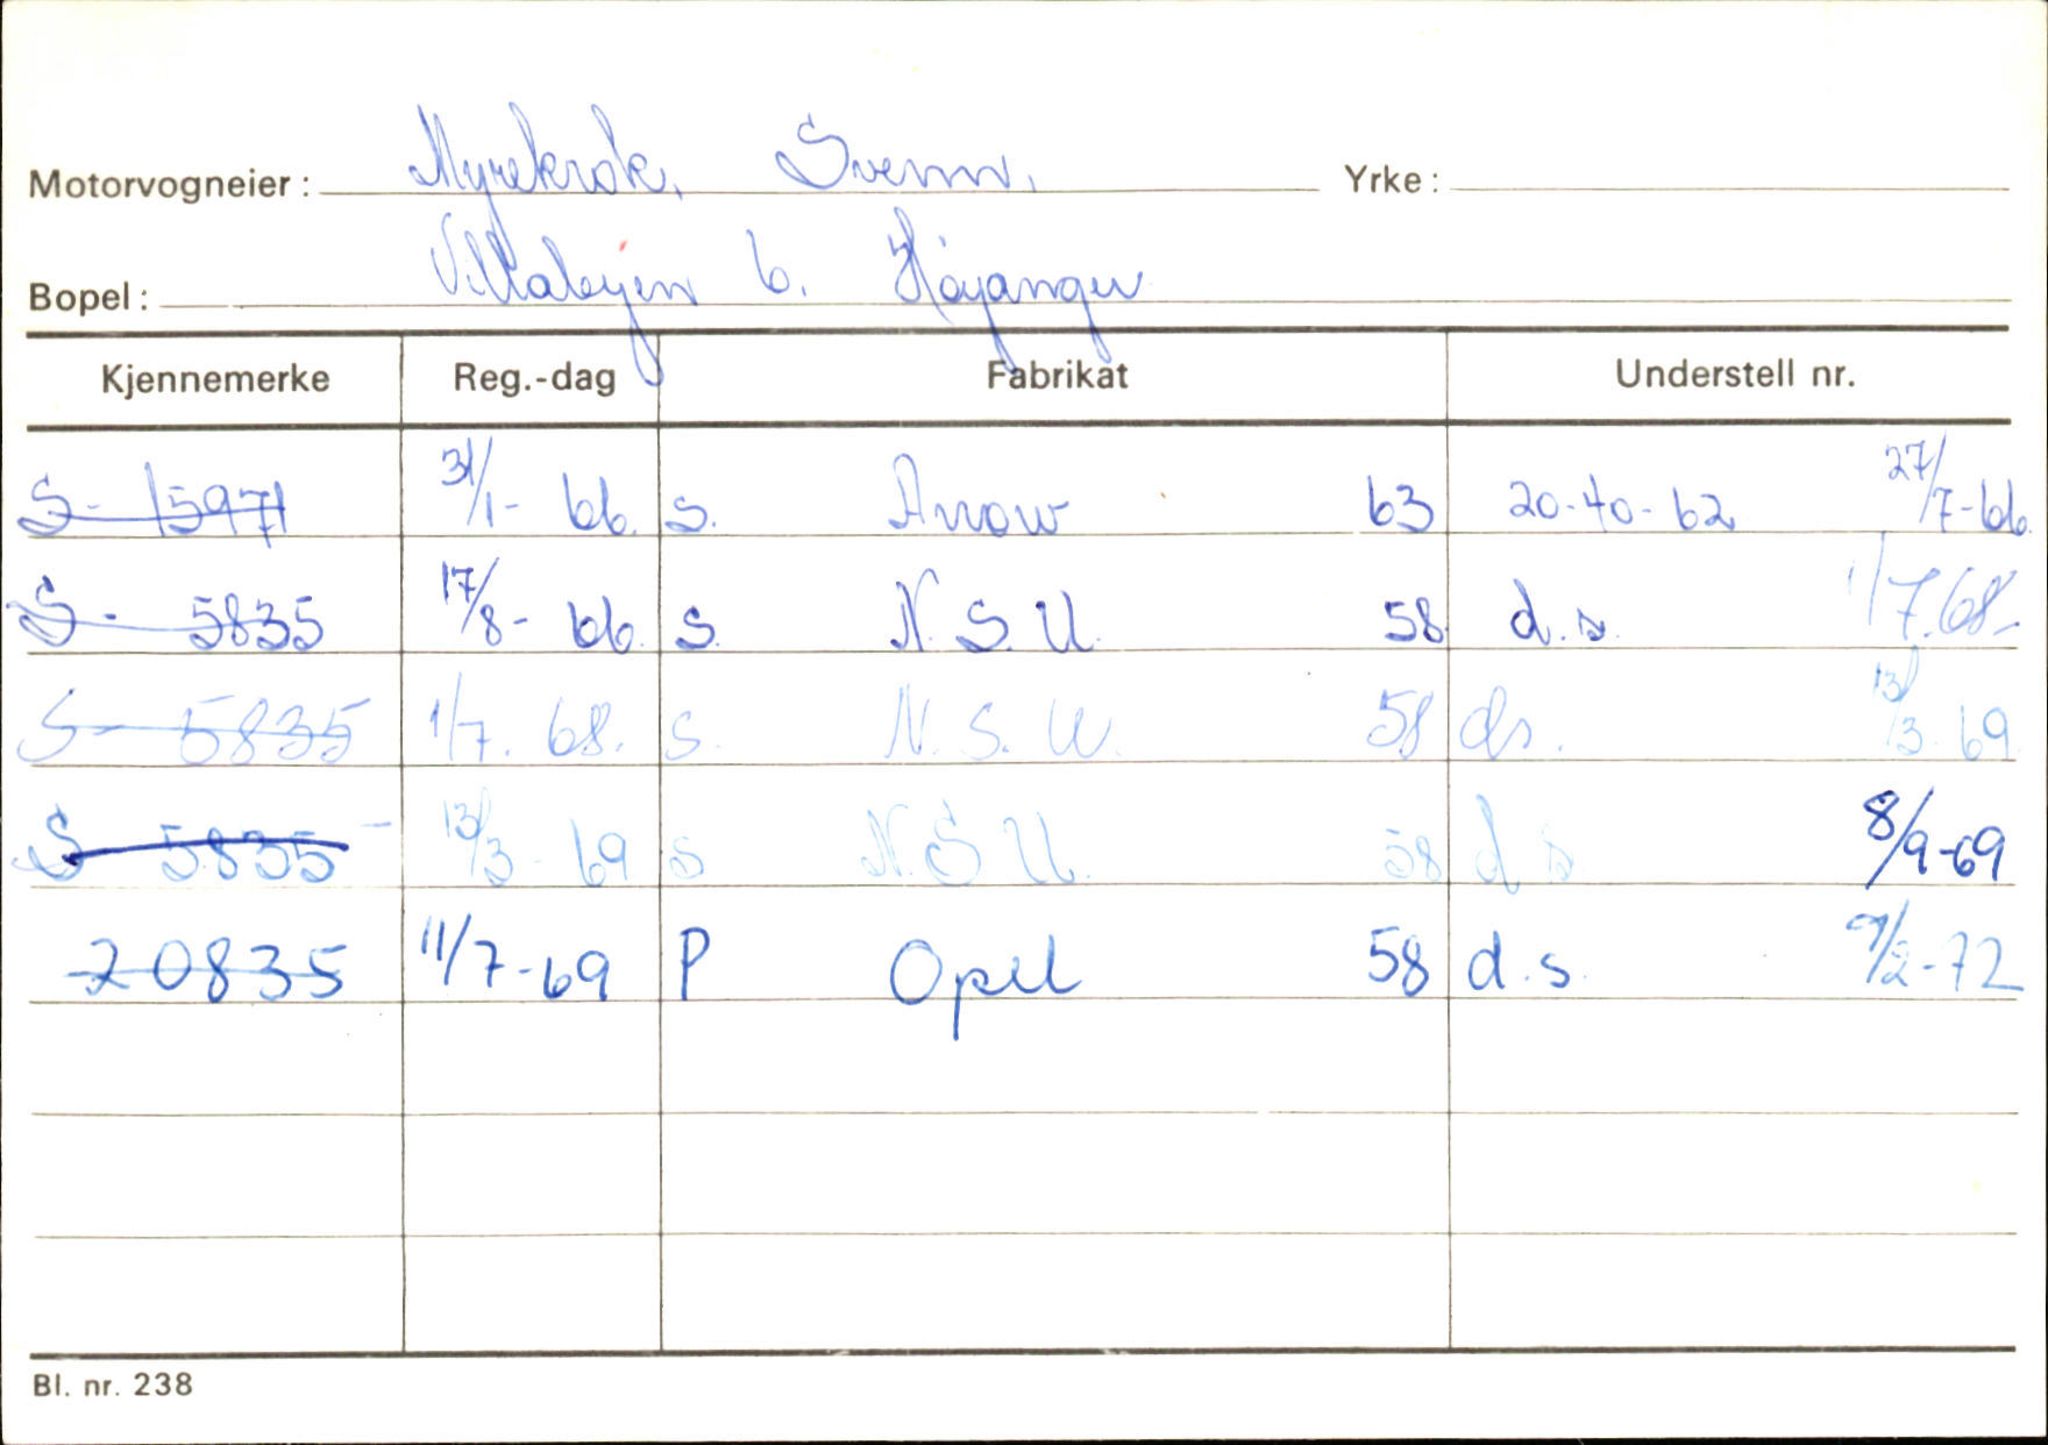 Motorvogneier: Myrekrok, Svenn. Yrke:
Bopel: Villabyen 6. Høyanger
Kjennemerke Reg.-dag Fabrikat Understell nr.
S - 15971 31/1- 66. s. Arrow 63 20-40-62 27/7-66.
S - 5835 17/8- 66. s. N.S.U. 58. d.s. 1/7.68-
S - 5835 1/7. 68. s. N.S.U. 58 ds. 13/3. 69
S 5835 - 13/3- 69 s N.S.U. 58 d s 8/9-69
20835 11/7-69 P Opel 58 d.s. 9/2-72
Bl. nr. 238